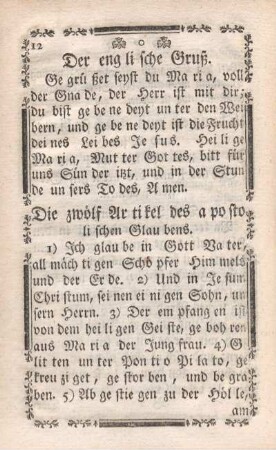 12
Der eng li sche Gruß.
Ge grü ßet seyst du Ma ri a, voll
der Gna de, der Herr ist mit dir;
du bist ge be ne deyt un ter den Wei
bern, und ge be ne deyt ist die Frucht
dei nes Lei bes Je sus. Hei li ge
Ma ri a, Mut ter Got tes, bitt für
uns Sün der itzt, und in der Stun
de un sers To des, A men.
Die zwölf Ar ti kel des a posto
li schen Glau bens.
1) Ich glau be in Gott Va ter,
all mäch ti gen Schö pfer Him mels
und der Er de. 2) Und in Je sum
Chri stum, sei nen ei ni gen Sohn, un
sern Herrn. 3) Der em pfang en ist
von dem hei li gen Gei ste, ge boh ren
aus Ma ri a der Jung frau. 4) G
lit ten un ter Pon ti o Pi la to, ge
kreu zi get, ge stor ben, und be gra
ben. 5) Ab ge stie gen zu der Höl le,
am